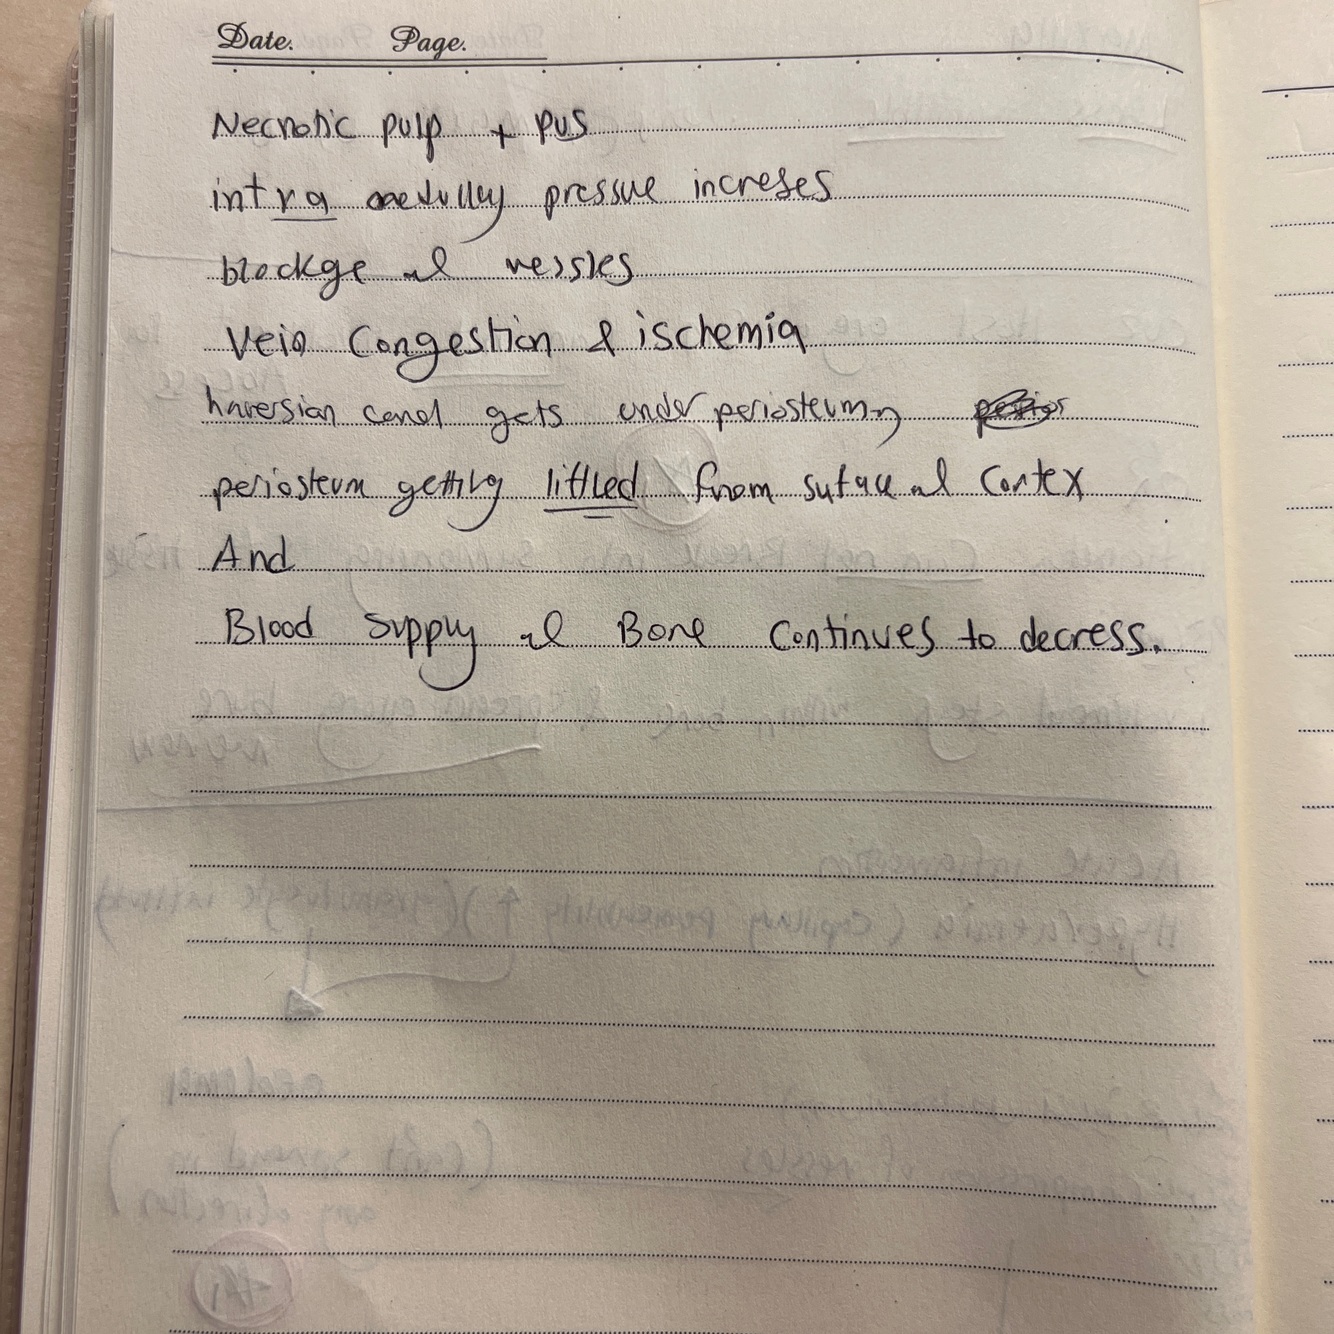 Date. Page.
Necrotic pulp + pus
intra medulley pressue increses
blockge of vessles
Vein Congestion & ischemia
haversian canal gets under periosteum
periosteum getting liftled from suface of Cortex
And
Blood Supply of Bone Continues to decress.